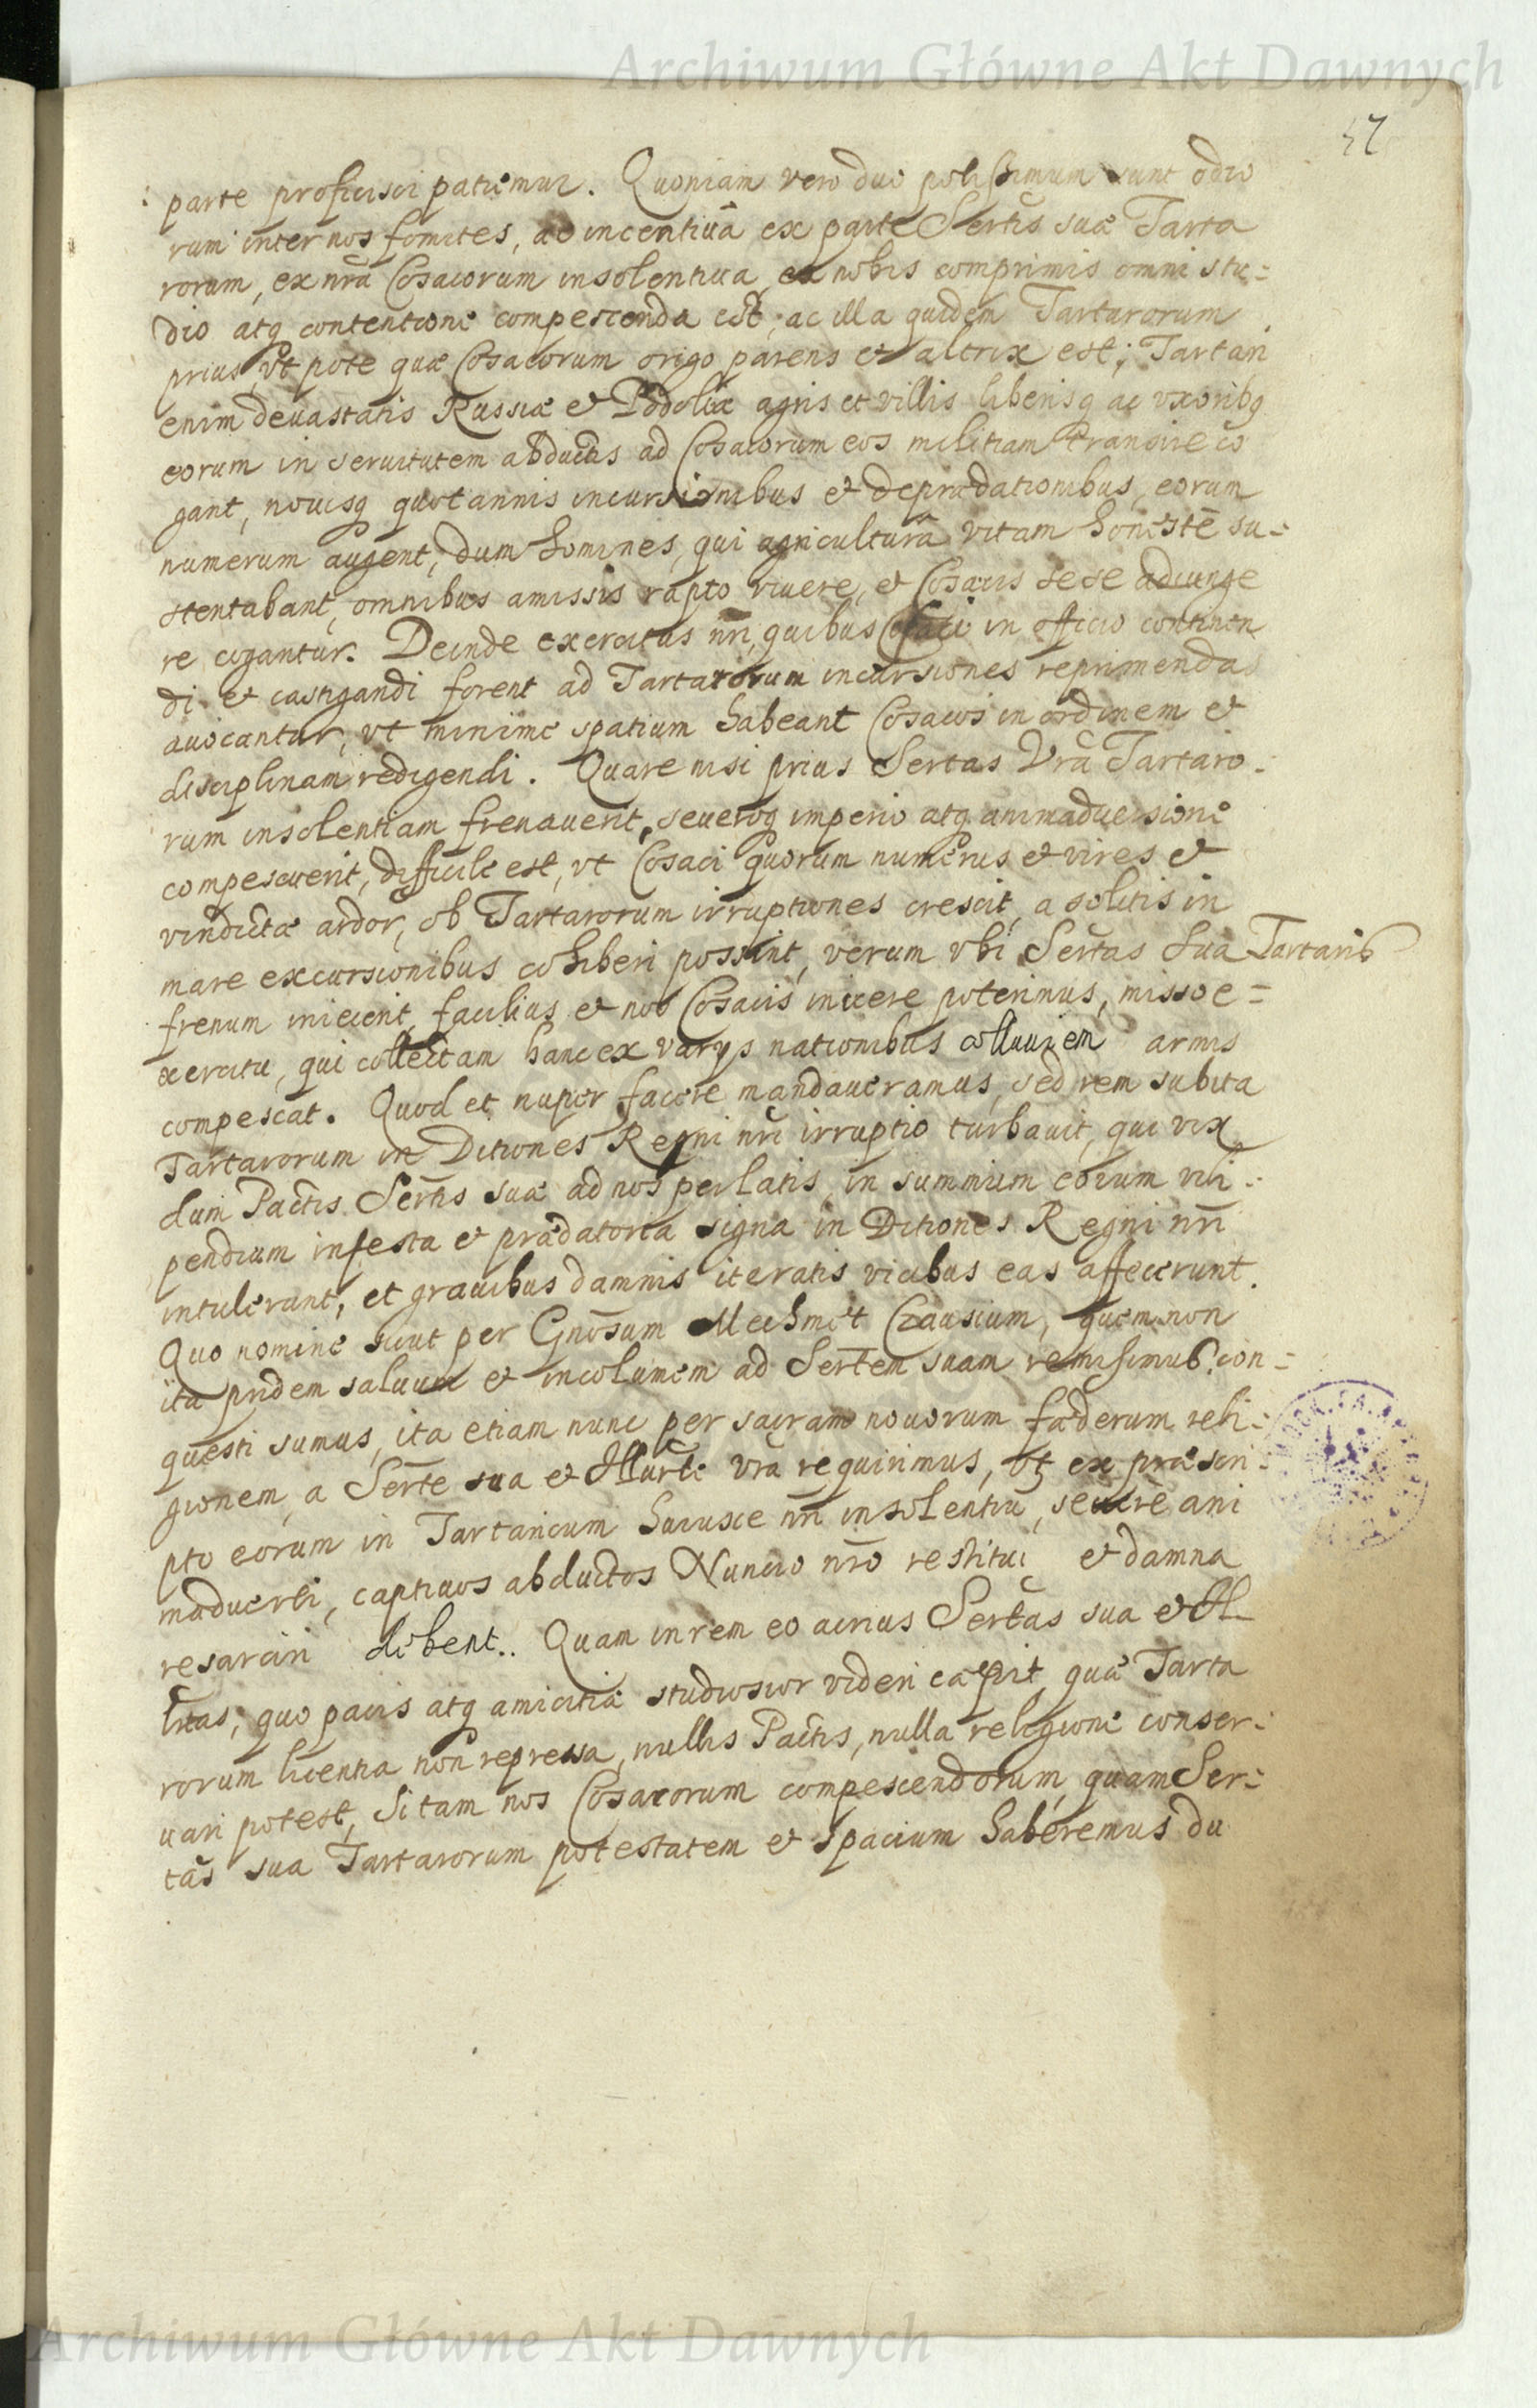 Archiwum Główne Akt Dawnych
47
parte proficisci patiemur. Quoniam vero duo potissimum sunt odio
rum inter nos fomites, ac incentiua ex parte Sertis suæ Tarta
rorum, ex nrã Cosacorum insolentiua, ex nobis comprimis omni stu-
dio atq contentione compescenda est; ac illa quidem Tartarorum
prius, vt pote quæ Cosacorum origo parens et altrix est; Tartari
enim deuastatis Russiæ et Podoliæ agris et villis liberisq ac vxoribq
eorum in seruitutem abductis ad Cosacorum eos militiam transire co
gant, nouisq quotannis incursionibus et deprædationibus, eorum
numerum augent, dum homines, qui agriculturâ vitam honestè su-
stentabant, omnibus amissis rapto viuere, et Cosacis sese adiunge
re cogantur. Deinde exercitus nri, quibus Cosaci in officio continen
di et castigandi forent ad Tartarorum incursiones reprimendas
auocantur, vt minime spatium habeant Cosacos in ordinem et
disciplinam redigendi. Quare nisi prius Sertas Vrã Tartaro-
rum insolentiam frenauerit, seueroq imperio atq animaduersione
compescuerit, difficile est, vt Cosaci quorum numerus et vires et
vindictæ ardor, ob Tartarorum irruptiones crescit, a solitis in
mare excursionibus cohiberi possint, verum vbi Sertas Sua Tartaris
frenum iniecerit, facilius et nos Cosacis inicere poterimus, misso e-
xercitu, qui collectam hanc ex varys nationibus colluuiem armis
compescat. Quod et nuper facere mandaueramus, sed rem subita
Tartarorum in Ditiones Regni nri irruptio turbauit, qui vix
dum Pactis Sertis suæ ad nos perlatis, in summum eorum vili-
pendium infesta et prædatoria signa in Ditiones Regni nri
intulerunt, et grauibus damnis iteratis vicibus eas affecerunt.
Quo nomine sicut per Gnosum Mechmet Czausium, quem non
ita pridem saluum et incolumem ad Sertem suam remisimus, con-
questi sumus, ita etiam nunc per sacram nouorum fæderum reli-
gionem, a Serte sua et Illurte vrã requirimus, vt ex præscri-
pto eorum in Tartaricum huiusce nri insolentiu, seuere ani
maduerti, captiuos abductos Nuncio nro restitui et damna
resarciri debent.. Quam in rem eo acrius Sertas sua et Il
ltas, quo pacis atq amicitiæ studiosior videri cæpit, quæ Tarta
rorum licentia non repressa, nullis Pactis, nulla religione conser-
uari potest, Si tam nos Cosacorum compescendorum, quam Ser-
tas sua Tartarorum potestatem et spacium haberemus du
Archiwum Główne Akt Dawnych